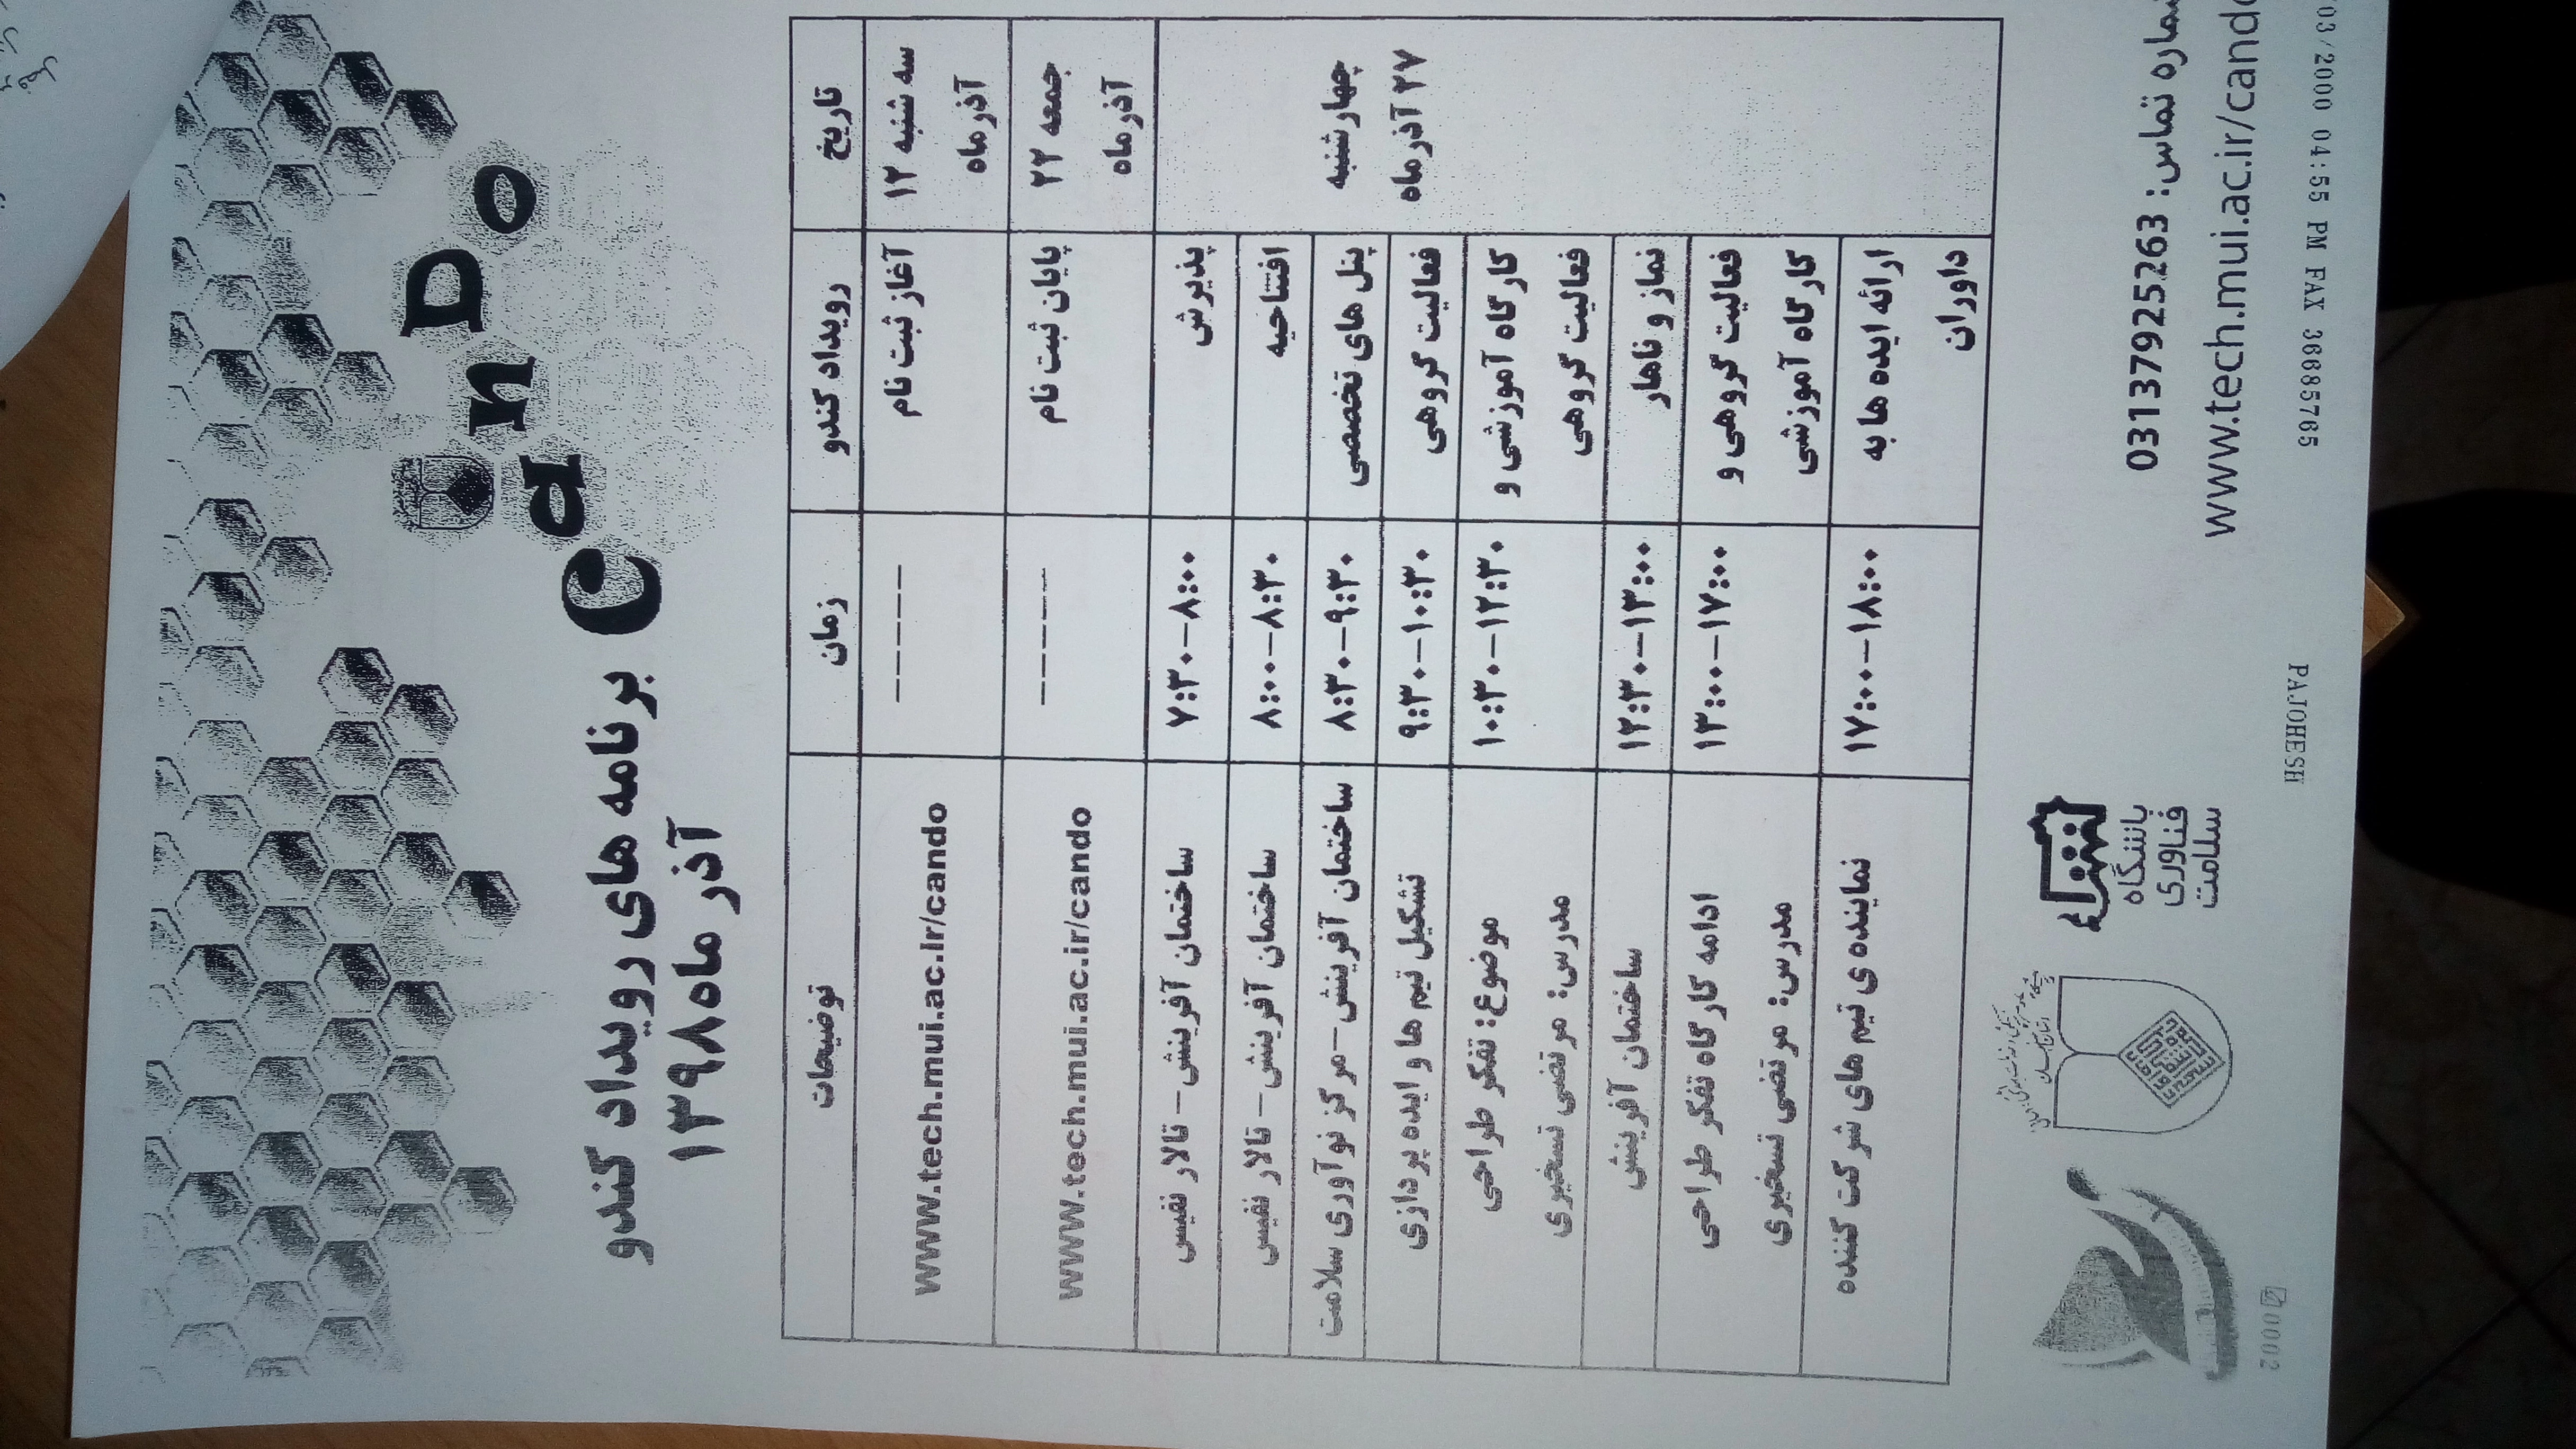 CanDo
برنامه های رویداد کندو
آذر ماه ۱۳۹۸
تاریخ رویداد کندو زمان توضیحات
سه شنبه ۱۲ آغاز ثبت نام ------ www.tech.mui.ac.ir/cando
آذر ماه
جمعه ۲۲ پایان ثبت نام ------ www.tech.mui.ac.ir/cando
آذر ماه
پذیرش ۷:۳۰-۸:۰۰ ساختمان آفرینش- تالار نفیس
افتتاحیه ۸:۰۰-۸:۳۰ ساختمان آفرینش- تالار نفیس
چهارشنبه پنل های تخصصی ۸:۳۰-۹:۳۰ ساختمان آفرینش-مرکز نوآوری سلامت
۲۷ آذر ماه فعالیت گروهی ۹:۳۰-۱۰:۳۰ تشکیل تیم ها و ایده پردازی
کارگاه آموزشی و ۱۰:۳۰-۱۲:۳۰ موضوع: تفکر طراحی
فعالیت گروهی مدرس: مرتضی تسخیری
نماز و ناهار ۱۲:۳۰-۱۳:۰۰ ساختمان آفرینش
فعالیت گروهی و ۱۳:۰۰-۱۷:۰۰ ادامه کارگاه تفکر طراحی
کارگاه آموزشی مدرس: مرتضی تسخیری
ارائه ایده ها به ۱۷:۰۰-۱۸:۰۰ نماینده ی تیم های شرکت کننده
داوران
شماره تماس: 03137925263
www.tech.mui.ac.ir/cando
باشگاه
فناوری
سلامت
03/2000 04:55 PM FAX 36685765 PAJOHESH 0002